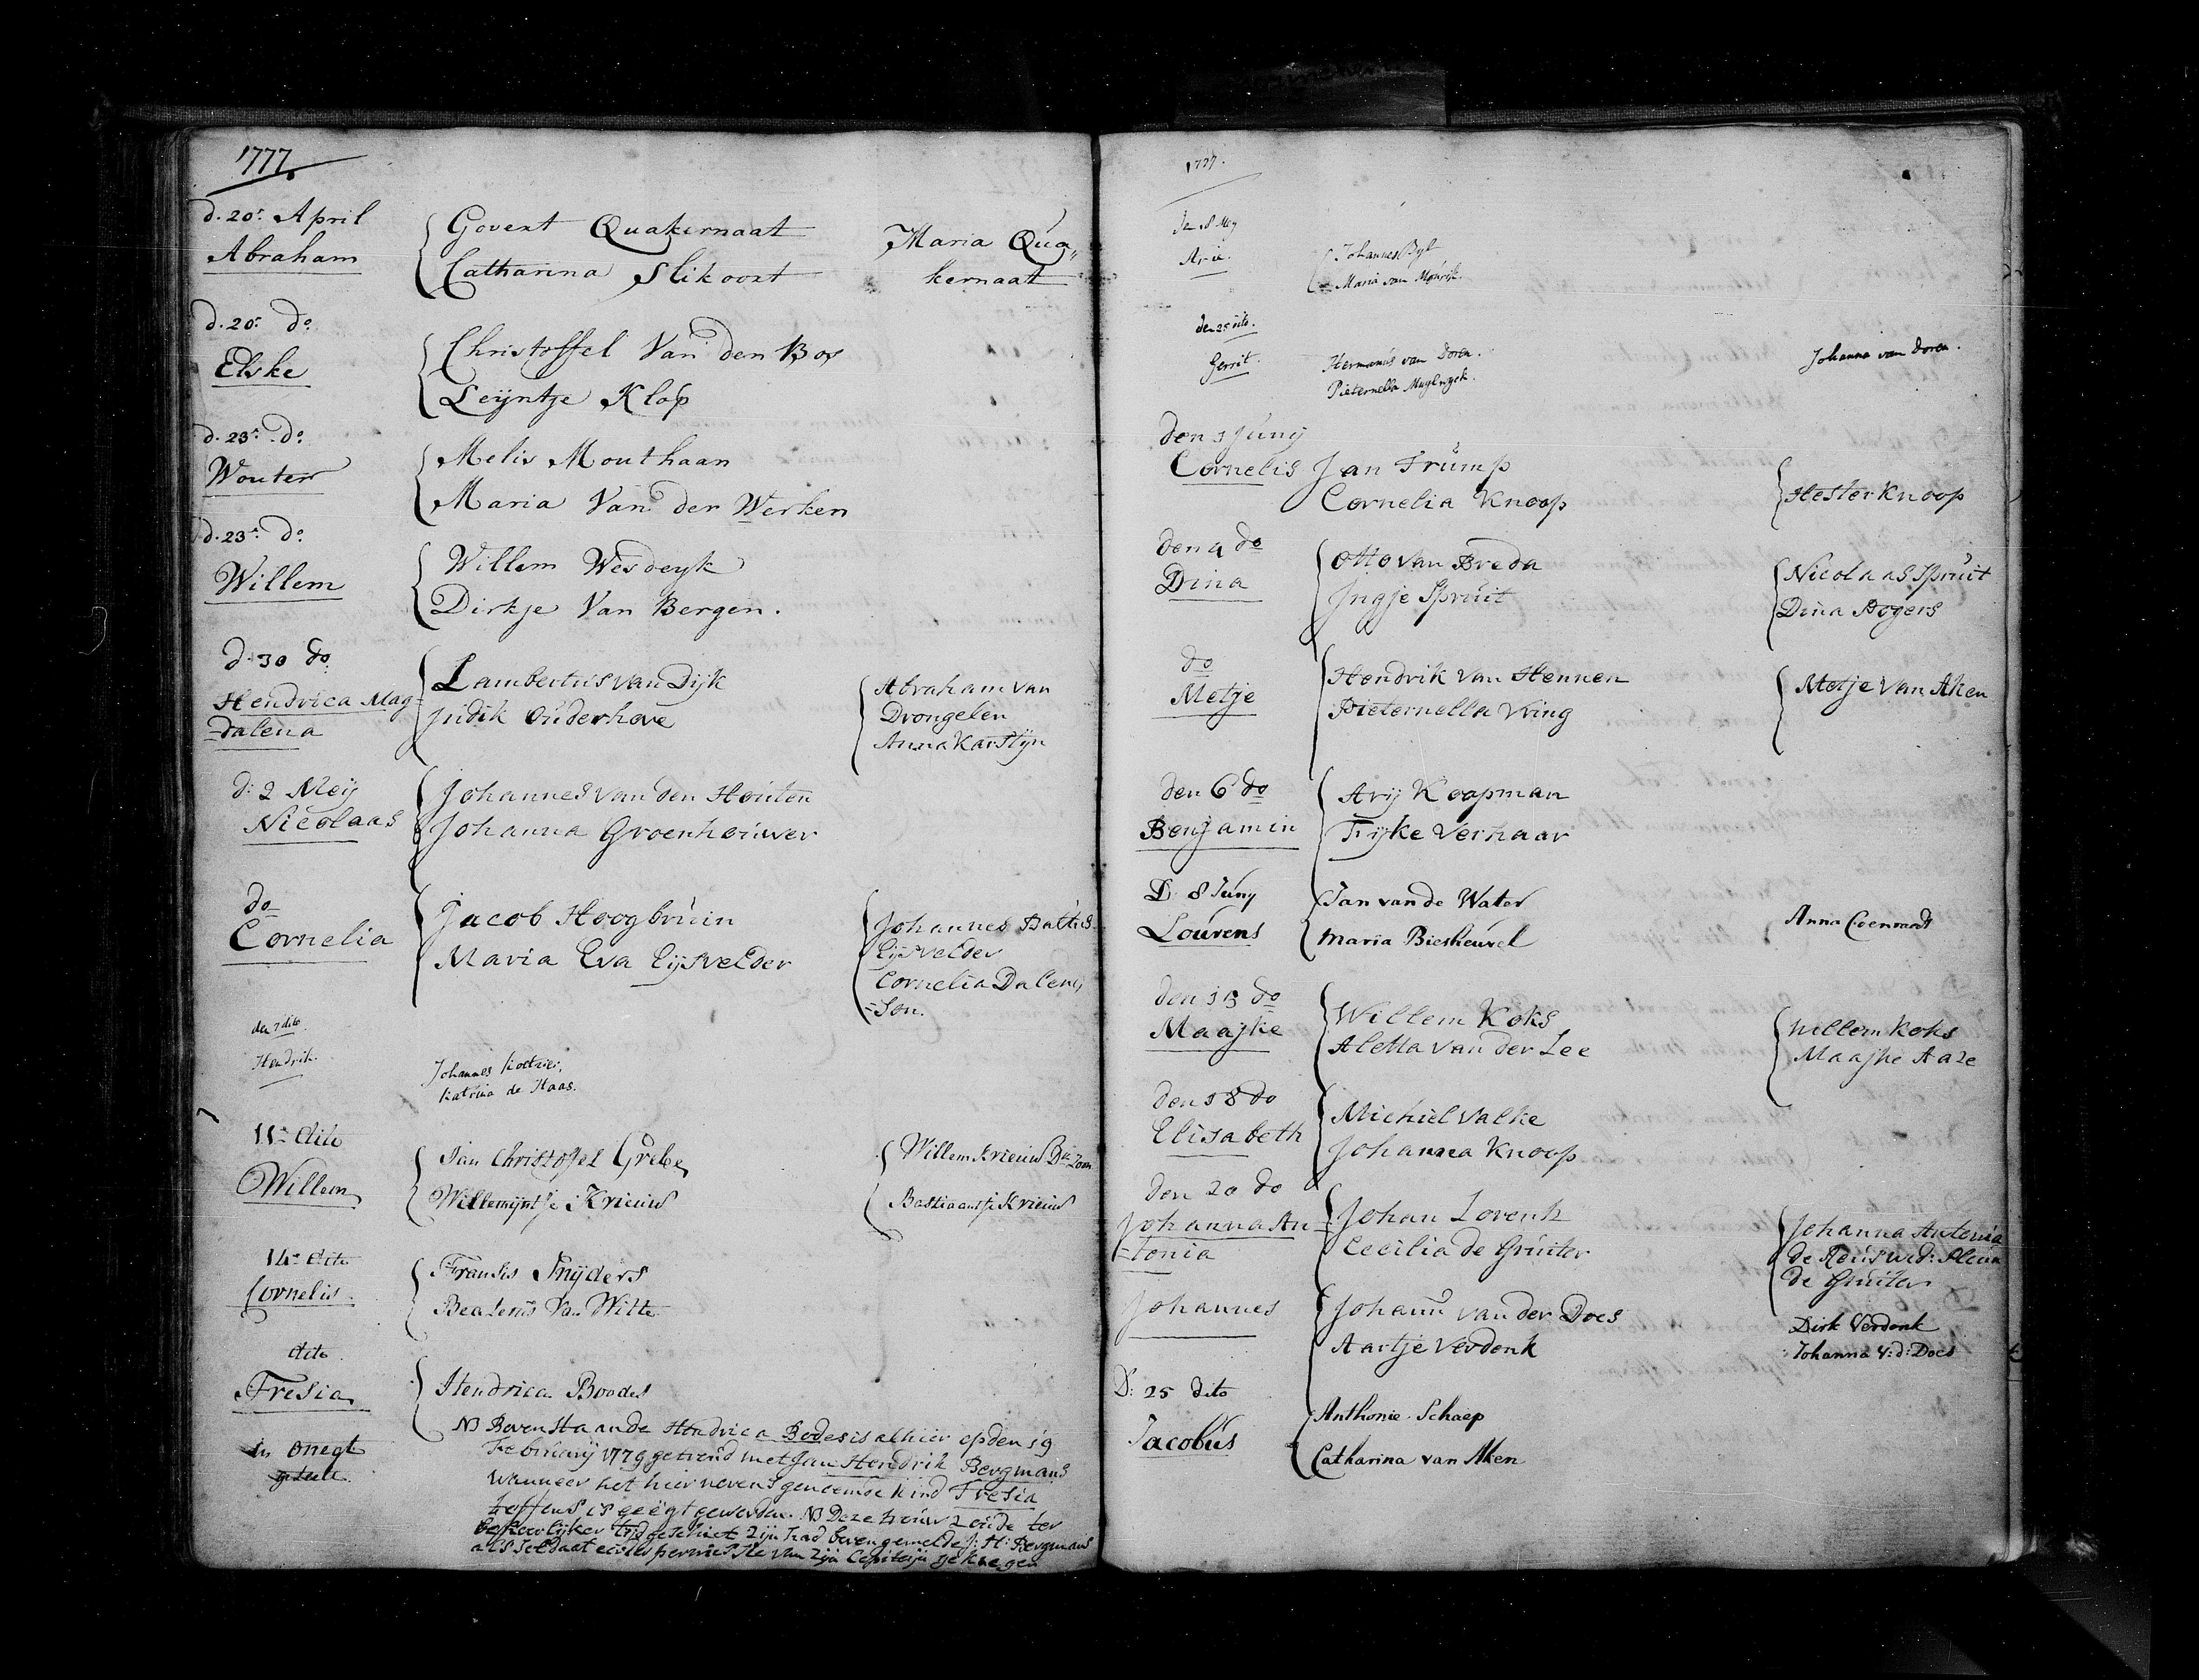 1777.
d. 20.e April
Abraham
Govert Quakernaat
Catharina Slikoort
Maria Qua„
kernaat
d. 20.e do
Elske
Christoffel Van den Bos
Leijntje Klop
d. 23.e do
Wouter
Melis Mouthaan
Maria Van der Werken
d. 23.e do
Willem
Willem Wesdeyk
Dirkje Van Bergen.
d. 30 do
Hendrica Mag-
=dalena
Lambertus van Dijk
Judik Ouderhove
Abraham van
Drongelen
Anna Karstijn
d: 2 Meij
Nicolaas
Johannes van den Houten
Johanna Groenhouwer
do
Cornelia
Jacob Hoogbruin
Maria Eva Eijsvelder
Johannes Baltus
Eijsvelder
Cornelia Dalen,
=Son.
den 7 dito.
Hendrik.
Johannes
Katrina de Haas.
11.e dito
Willem
Jan Christoffel Grebe
Willemijntje Krieuw
Willem Krieuw Dk Zoon
Bastiaantje Krieuw
14.e dito
Cornelis.
Fransis Snijders
Beatenis Van Witte
dito.
Fresia
Hendrica Boodes
in onegt
geteelt.
NB Bovenstaande Hendrica Bodes is alhier op den 19
Februarij 1779 getroud met Jan Hendrik Bergmans
wanneer het hier nevens genoemde kind Fresia
teffens is geëgt geworden. NB Deze trouw zoude ter
behoorlijker tijd geschiet zijn had bovengemelde J: H: Bergmans
als Soldaat eerder permissie van zijn Capiteijn gekregen
1777.
den 18 Mey
Arie.
Johannes Byl
Maria van Mourik.
den 25 dito.
Gerrit.
Hermanus van Doren.
Pieternella
Johanna van Doren.
den 1 Junij
Cornelis
Jan Trump
Cornelia Knoop
Hester Knoop
den 4 do
Dina
Otto van Breda
Ingje Spruit
Nicolaas Spruit
Dina Rogers
do
Metje
Hendrik van Hennen
Pieternella Vring
Metje van Aken
den 6 do
Benjamin
Arij Koopman
Fijke Verhaar
D. 8 Juny
Lourens
Jan van de Water
Maria Biesheuvel
Anna Coenraads
den 13 do
Maajke
Willem Koks
Aletta van der Lee
Willem Koks
Maajke Aaze
den 18 do
Elisabeth
Michiel Valke
Johanna Knoop
den 20 do
Johanna An-
=tonia
Johan Lorents
Cecilia de Gruiter
Johanna Antonia
de Reus wed:
de Gruiter
Johannes
Johann van der Does
Aartje Verdonk
Dirk Verdonk
Johanna v: d: Does
D: 25 dito
Jacobus
Anthonie Schaep
Catharina van Aken